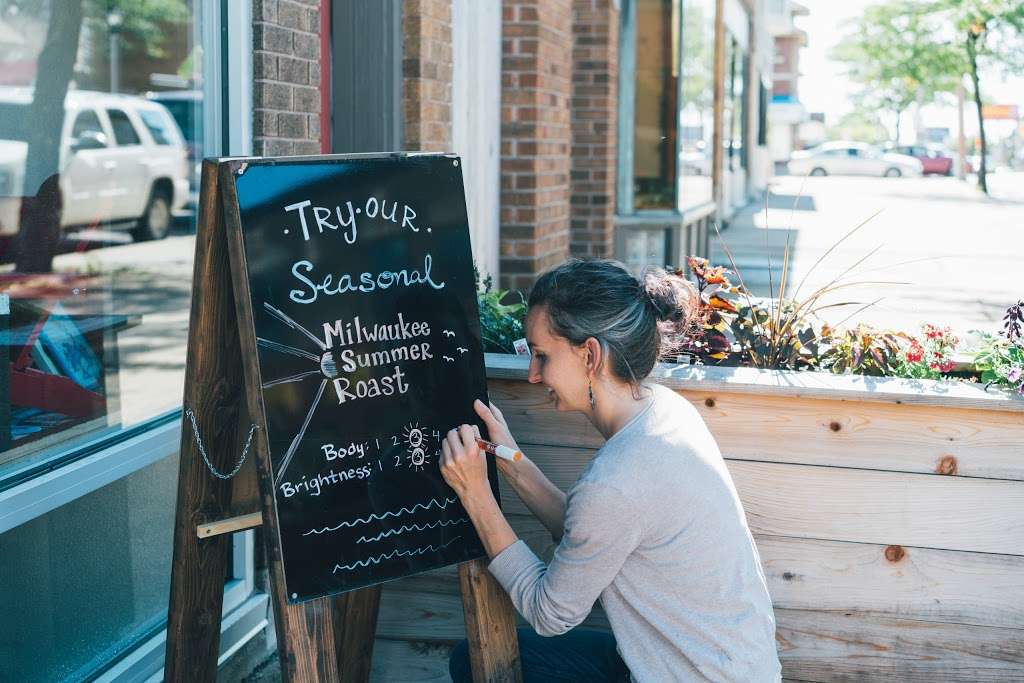 ·TRY·OUR·
Seasonal
Milwaukee
Summer
Roast
Body: 1 2 3 4
Brightness: 1 2 3 4